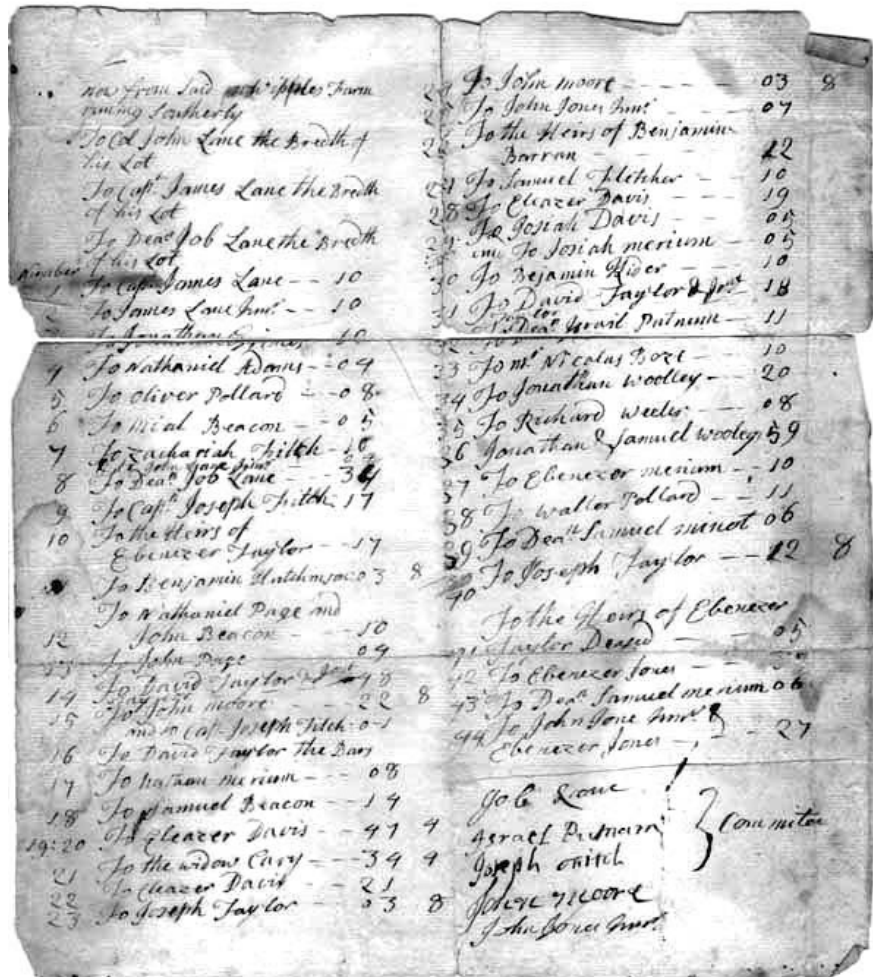 now from Said whipples Farm
runing Southerly
To Col John Lane the Bredth of
his Lot
To Capt James Lane the Bredth
of his Lot
To Dean Job Lane the Bredth
of his Lot
Number
1 To Capt James Lane -- 10
2 To James Lane Junr - 10
3 To Jonathan Grimes 10
4 To Nathaniel Adams - 04
5 To Oliver Pollard - 08
6 To Mial Beacon - 05
7 To Zachariah Fitch - 16
& to John Lane Junr
8 To Dean Job Lane - 34
9 To Capt Joseph Fitch 17
10 To the Heirs of
Ebenezer Taylor - 17
To Benjamin Hutchinson 03 8
To Nathaniel Page and
12 John Beacon - 10
13 To John Page 09
14 To David Taylor & Jos 48
15 To John moore - 22 8
and to Cap Joseph Fitch 01
16 To David Taylor the Bars
17 To nathan merium - 08
18 To Samuel Beacon - 14
19:20 To Eleazer Davis - 47 4
21 To the widow Cary - 34 4
22 To Eleazer Davis - 21
23 To Joseph Taylor - 03 8
24 To John moore - 03 8
25 To John Jones Junr - 07
26 To the Heirs of Benjamin
Barran - 12
27 To Samuel Fletcher - 10
28 To Eleazer Davis - 19
29 To Josiah Davis - 05
To Josiah merium - 05
30 To Bejamin Kider - 10
31 To David Taylor & Jnr 18
Taylor
32 To Dean Israil Putnum - 11
33 To mr Nicolas Boze - 10
34 To Jonathan woolley - 20
35 To Richard weeler - 08
36 Jonathan & Samuel wooley 59
37 To Ebenezer merium - 10
38 To waller Pollard - 11
39 To Dean Samuel minot 06
40 To Joseph Taylor -- 12 8
To the Heirs of Ebenezer
41 Taylor Deasd - 05
42 To Ebenezer Jones -
43 To Dean Samuel merium 06
44 To John Jone Junr &
Ebenezer Jones - 27
Job Lane
Israel Putnam
Joseph ffitch
John moore
John Jones Junr
Commitee